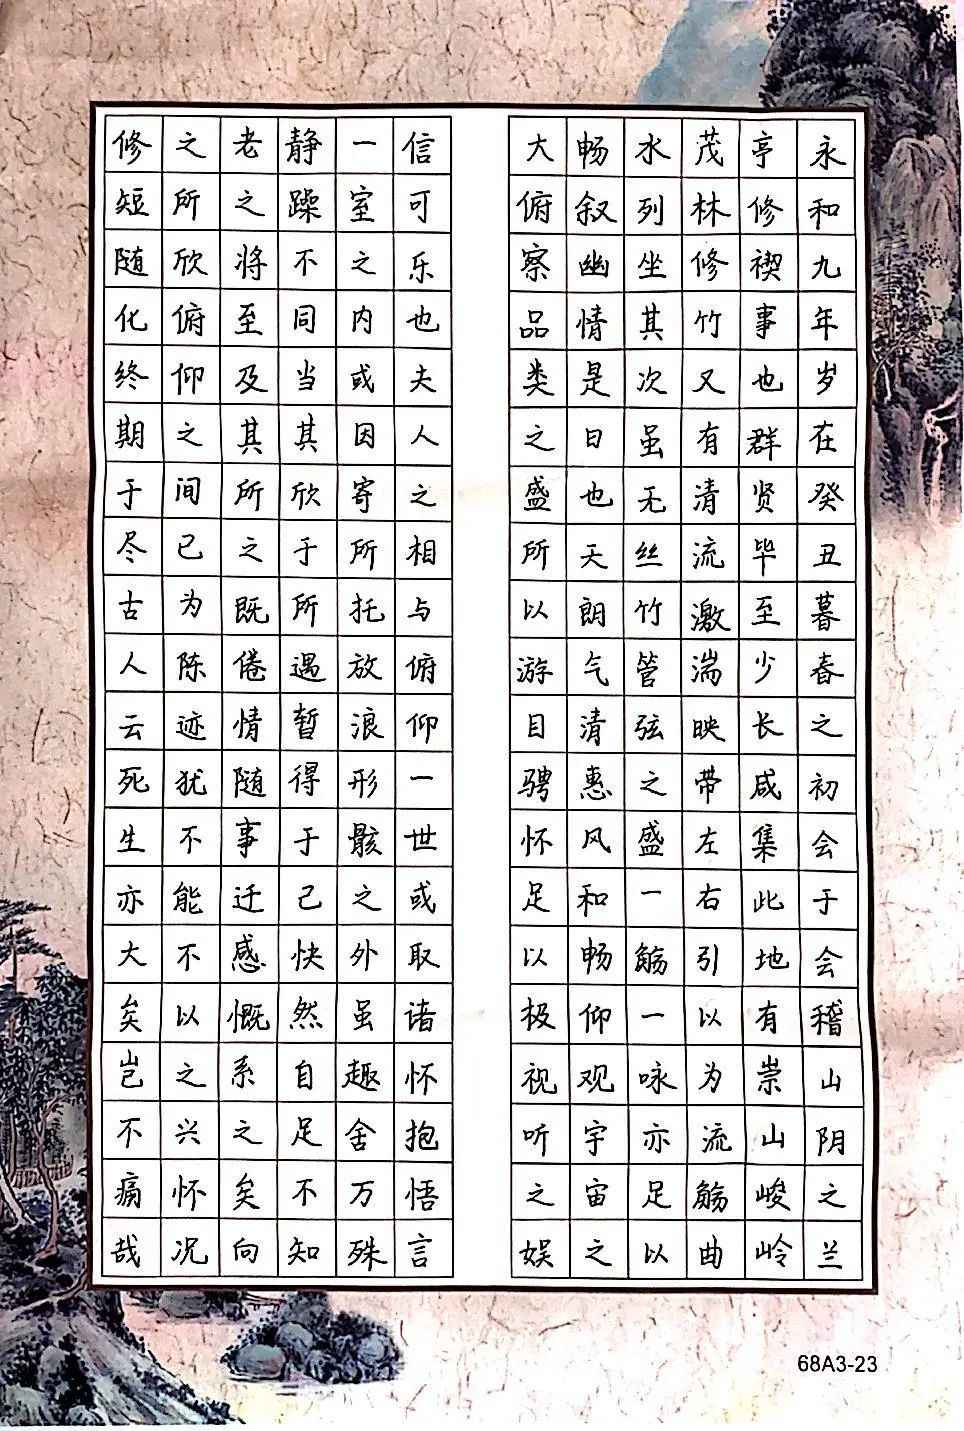 永和九年岁在癸丑暮春之初会于会稽山阴之兰
亭修禊事也群贤毕至少长咸集此地有崇山峻岭
茂林修竹又有清流激湍映带左右引以为流觞曲
水列坐其次虽无丝竹管弦之盛一觞一咏亦足以
畅叙幽情是日也天朗气清惠风和畅仰观宇宙之
大俯察品类之盛所以游目骋怀足以极视听之娱
信可乐也夫人之相与俯仰一世或取诸怀抱悟言
一室之内或因寄所托放浪形骸之外虽趣舍万殊
静躁不同当其欣于所遇暂得于己快然自足不知
老之将至及其所之既倦情随事迁感慨系之矣向
之所欣俯仰之间已为陈迹犹不能不以之兴怀况
修短随化终期于尽古人云死生亦大矣岂不痛哉
68A3-23